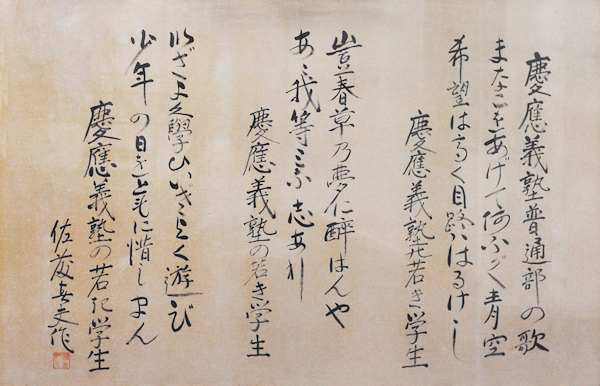 慶應義塾普通部の歌
まなこをあげて仰ふぐ青空
希望は高く目路はるけし
慶應義塾の若き学生
豈春草乃夢に醉はんや
あゝ我等みな志あり
慶應義塾の若き学生
いざよく學びいざよく遊び
少年の日をともに惜しまん
慶應義塾の若き学生
佐藤春夫作